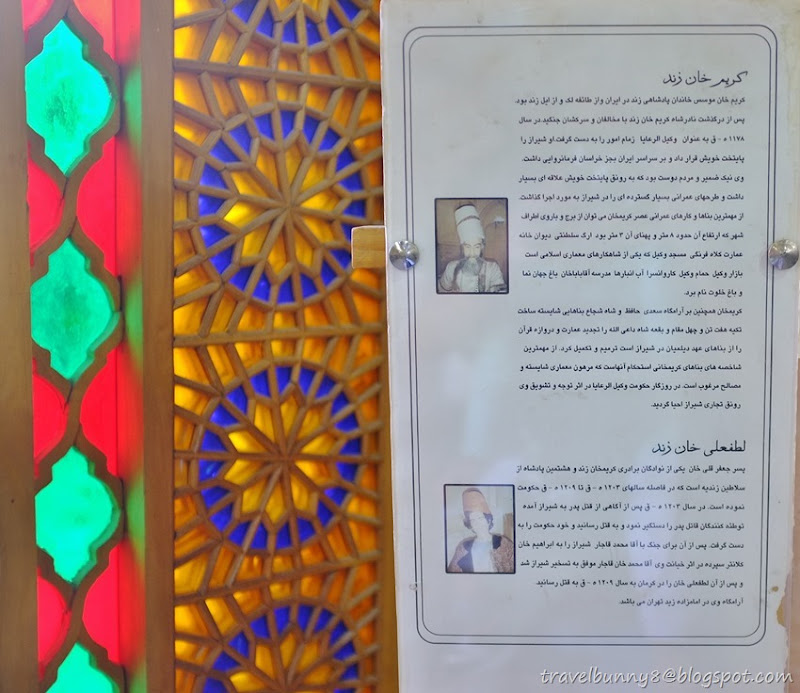 کریم خان زند
کریم خان موسس خاندان پادشاهی زند در ایران واز طائفه لک و از ایل زند بود.
پس از درگذشت نادرشاه کریم خان زند با مخالفان و سرکشان جنگید.در سال
۱۱۷۸ ه - ق به عنوان وکیل الرعایا زمام امور را به دست گرفت.او شیراز را
پایتخت خویش قرار داد و بر سراسر ایران بجز خراسان فرمانروایی داشت.
وی نیک ضمیر و مردم دوست بود که به رونق پایتخت خویش علاقه ای بسیار
داشت و طرحهای عمرانی بسیار گسترده ای را در شیراز به مورد اجرا گذاشت
از مهمترین بناها و کارهای عمرانی عصر کریمخان می توان از برج و باروی اطراف
شهر که ارتفاع آن حدود ۸ متر و پهنای آن ۳ متر بود ارگ سلطنتی دیوان خانه
عمارت کلاه فرنگی مسجد وکیل که یکی از شاهکارهای معماری اسلامی است
بازار وکیل حمام وکیل کاروانسرا آب انبارها مدرسه آقاباباخان باغ جهان نما
و باغ خلوت نام برد.
کریمخان همچنین بر آرامگاه سعدی حافظ و شاه شجاع بناهایی شایسته ساخت
تکیه هفت تن و چهل مقام و بقعه شاه داعی الله را تجدید عمارت و دروازه قرآن
را از بناهای عهد دیلمیان در شیراز است ترمیم و تکمیل کرد. از مهمترین
شاخصه های بناهای کریمخانی استحکام آنهاست که مرهون معماری شایسته و
مصالح مرغوب است. در روزگار حکومت وکیل الرعایا در اثر توجه و تشویق وی
رونق تجاری شیراز احیا گردید.
لطفعلی خان زند
پسر جعفر قلی خان یکی از نوادگان برادری کریمخان زند و هشتمین پادشاه از
سلاطین زندیه است که در فاصله سالهای ۱۲۰۳ ه - ق تا ۱۲۰۹ ه - ق حکومت
نموده است. در سال ۱۲۰۳ ه - ق پس از آگاهی از قتل پدر به شیراز آمده
توطئه کنندگان قاتل پدر را دستگیر نمود و به قتل رسانید و خود حکومت را به
دست گرفت. پس از آن برای جنگ با آقا محمد قاجار شیراز را به ابراهیم خان
کلانتر سپرده در اثر خیانت وی آقا محمد خان قاجار موفق به تسخیر شیراز شد
و پس از آن لطفعلی خان را در کرمان به سال ۱۲۰۹ ه - ق به قتل رسانید.
آرامگاه وی در امامزاده زید تهران می باشد.
travelbunny8@blogspot.com